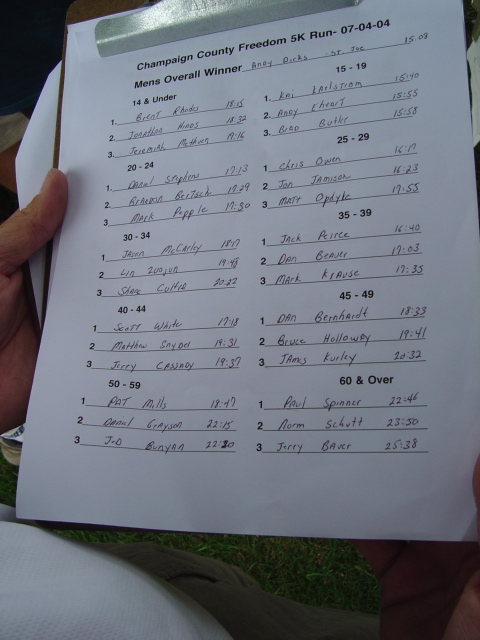 Champaign County Freedom 5K Run- 07-04-04
Mens Overall Winner Andy Dirks - St. Joe 15:08
14 & Under
1. Brent Rhodes 18:15
2. Jonathan Hinds 18:32
3. Jeremiah Mathien 19:16
15 - 19
1. Kai Karlstrom 15:40
2. Andy Kheart 15:55
3 Brad Butler 15:58
20 - 24
1. Daniel Stephens 17:13
2. Brandon Bertsch 17:29
3 Mark Pepple 17:30
25 - 29
1 Chris Owen 16:17
2 Jon Jamison 16:23
3 Matt Opdyke 17:55
30 - 34
1 Jason McCarley 18:17
2 Lin 19:48
3 Shane Cultra 20:22
35 - 39
1 Jack Peirce 16:40
2 Dan Beaver 17:03
3 Mark Krause 17:35
40 - 44
1 Scott White 17:18
2 Matthew Snyder 19:31
3 Jerry Cassady 19:37
45 - 49
1 Dan Bernhardt 18:33
2 Bruce Holloway 19:41
3 James Kurley 20:32
50 - 59
1 Pat Mills 18:47
2 Daniel Grayson 22:15
3 Jed Bunyan 22:20
60 & Over
1 Paul Spinner 22:46
2 Norm Schutt 23:50
3 Jerry Bauer 25:38